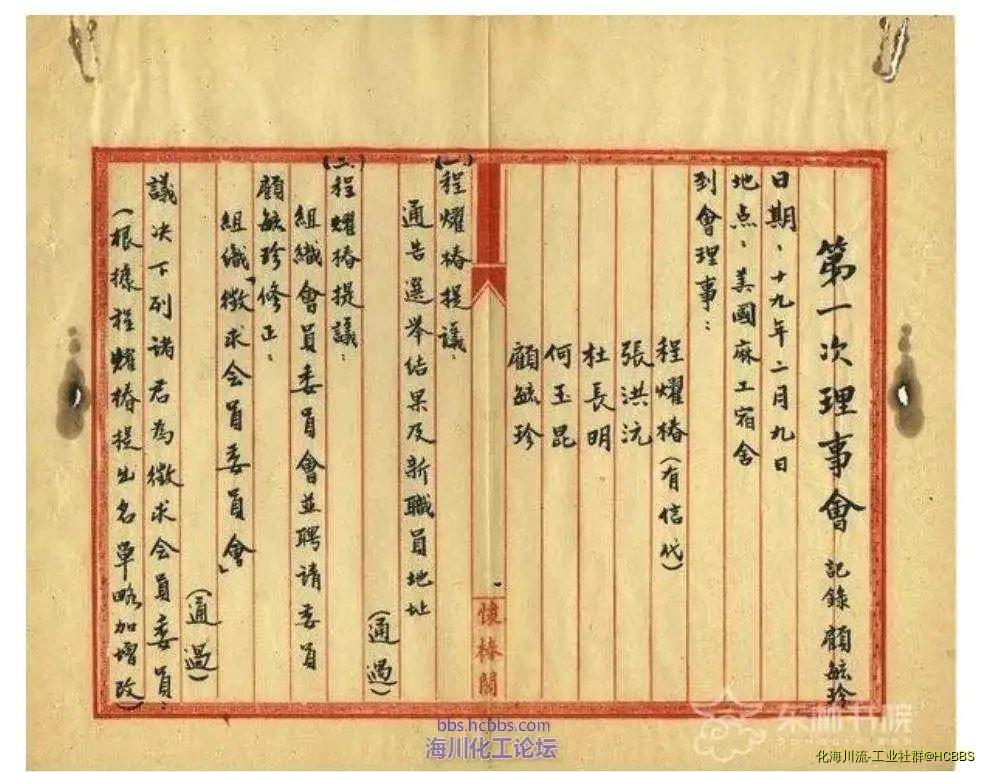 第一次理事會 記錄 顧毓珍
日期：十九年二月九日
地点：美國麻工宿舍
到會理事：
程燿椿（有信代）
張洪沅
杜長明
何玉昆
顧毓珍
懷椿閣
(一)程燿椿提議：
通告選举结果及新職員地址
（通過）
(二)程燿椿提議：
組織會員委員會並聘請委員
顧毓珍修正：
組織「徵求会員委員會」
（通過）
議决下列诸君為徵求会員委員：
（根據程燿椿提出名單略加增改）
东林书院
bbs.hcbbs.com
海川化工论坛
化海川流-工业社群@HCBBS